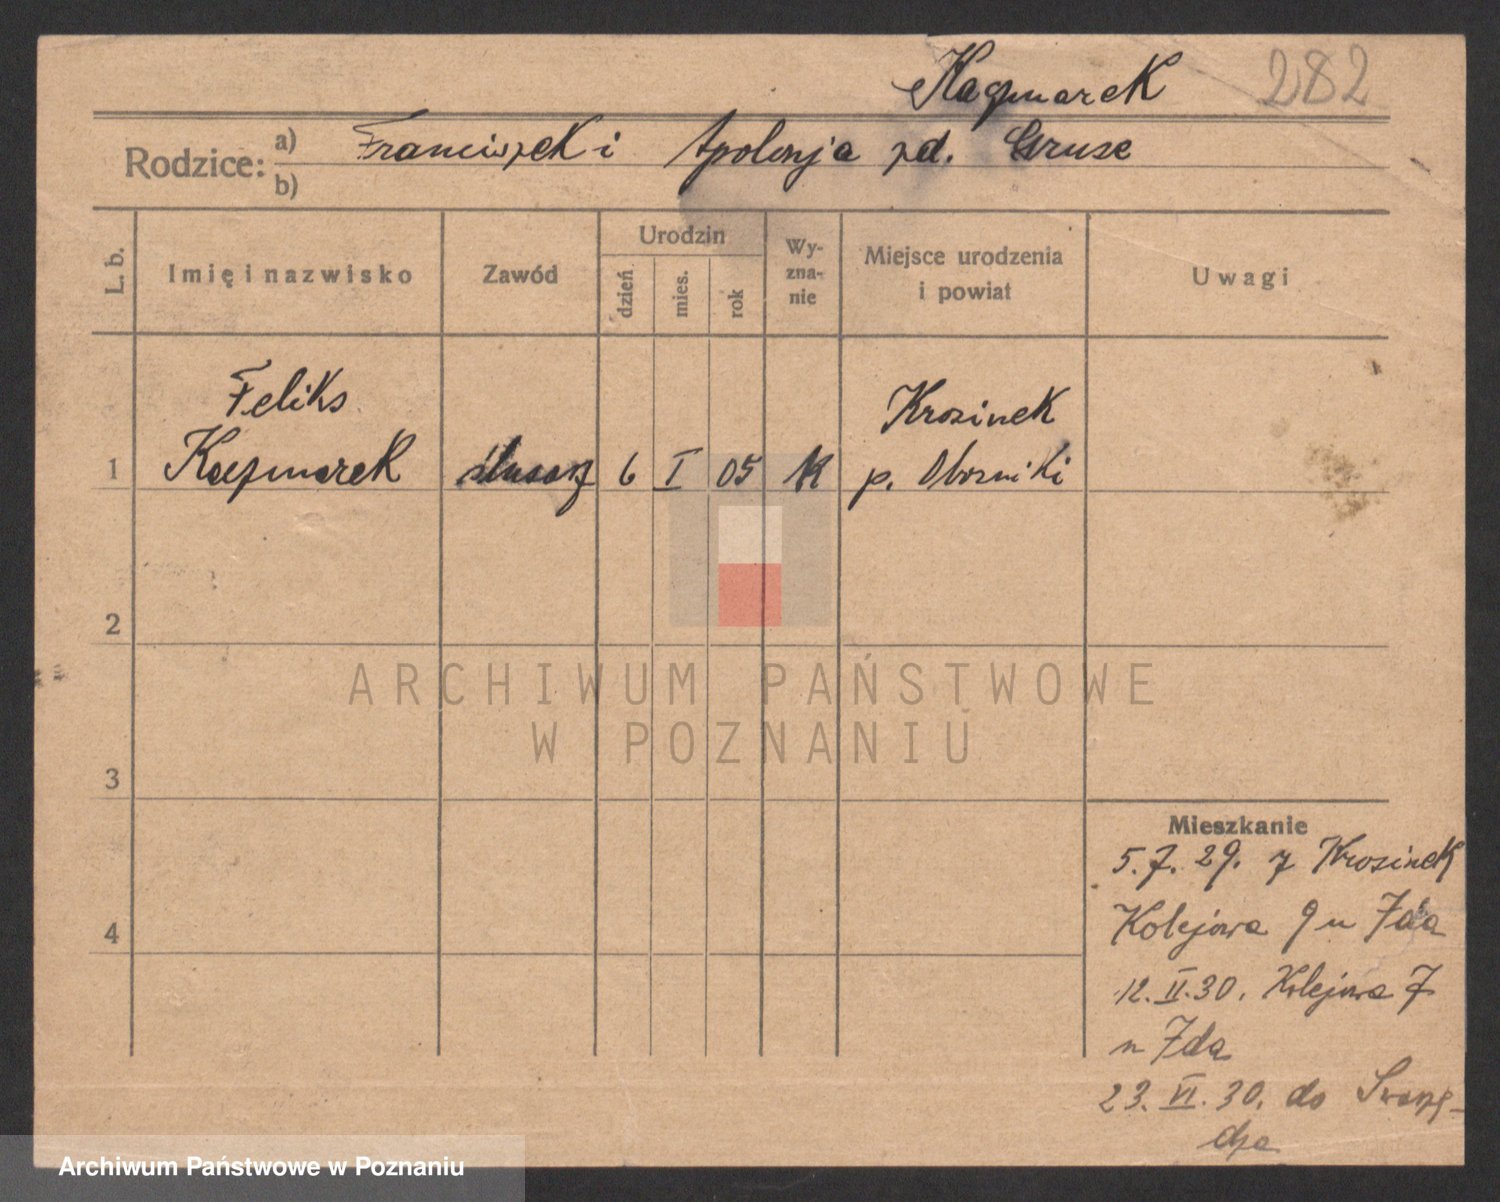 Kaczmarek 282
Rodzice:
a) Franciszek i Apolonja zd. Gruse
b)
L. b.
Imię i nazwisko
Zawód
Urodzin
dzień
mies.
rok
Wy-
zna-
nie
Miejsce urodzenia
i powiat
Uwagi
Feliks
Krosinek
1 Kaczmarek ślusarz 6 I 05 K p. Oborniki
2
ARCHIWUM PAŃSTWOWE
W POZNANIU
3
Mieszkanie
5.7.29. z Krosinek
4
Kolejowa 9 u Zda
12.II.30. Kolejowa 7
u Zda
23.VI.30. do Swarzę-
dza
Archiwum Państwowe w Poznaniu